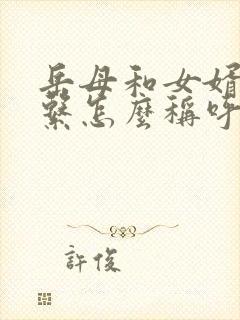 岳母和女婿
繫怎麼稱呼
許俊